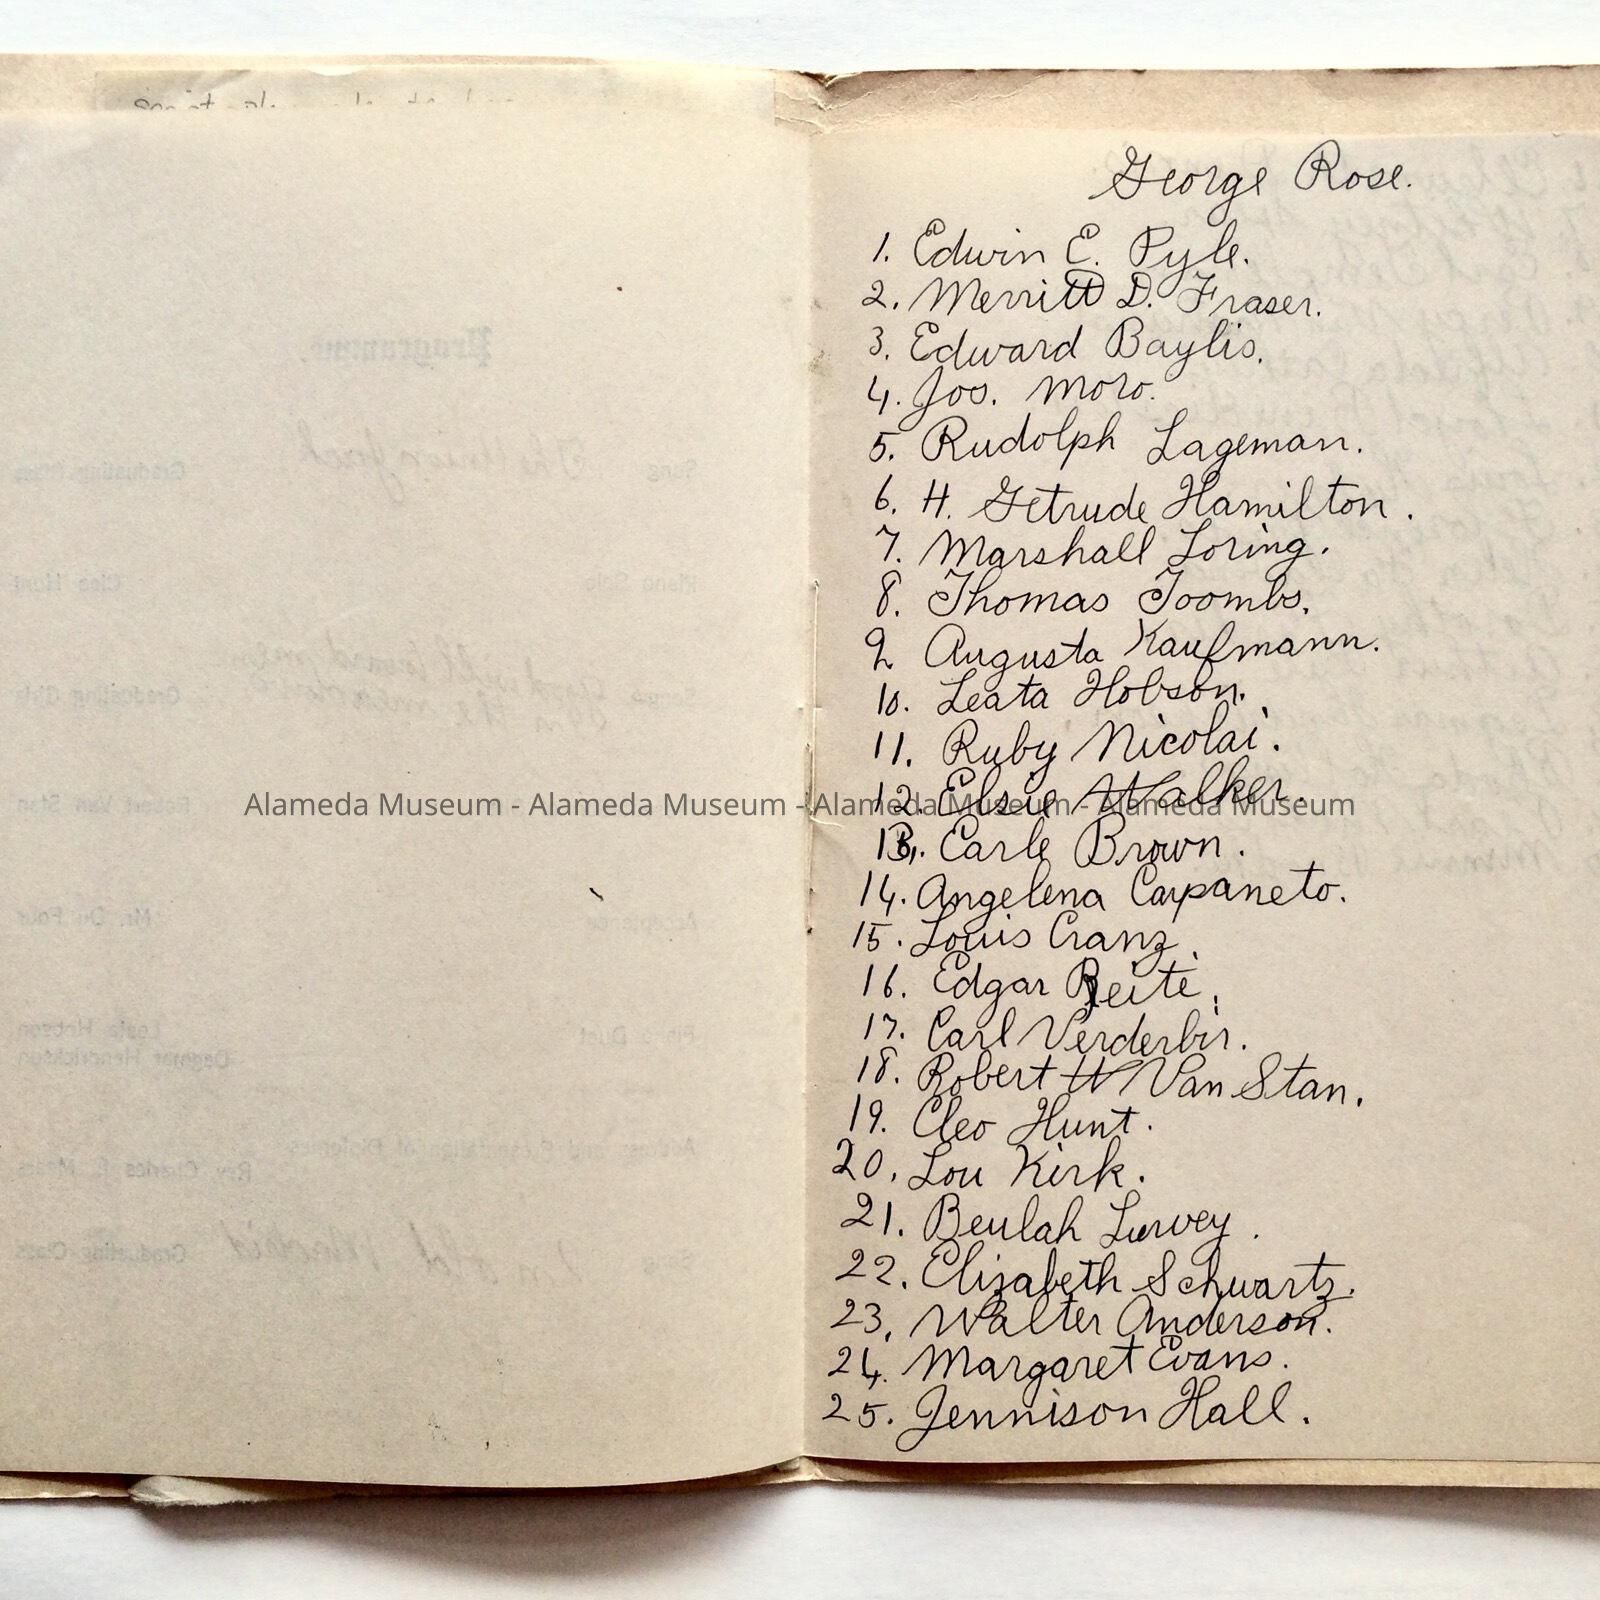 George Rose.
1. Edwin E. Pyle.
2. Merritt D. Fraser.
3. Edward Baylis.
4. Jos. Moro.
5. Rudolph Lageman.
6. H. Getrude Hamilton.
7. Marshall Loring.
8. Thomas Toombs.
9 Augusta Kaufmann.
10. Leata Hobson.
11. Ruby Nicolai.
12. Elsie Walker.
Alameda Museum - Alameda Museum - Alameda Museum - Alameda Museum
13. Earle Brown.
14. Angelena Carpaneto.
15. Louis Cranz.
16. Edgar
17. Carl Verderbir.
18. Robert W Van Stan.
19. Cleo Hunt.
20. Lou Kirk.
21. Beulah Lurvey.
22. Elizabeth Schwartz.
23. Walter Anderson.
24. Margaret Evans.
25. Jennison Hall.